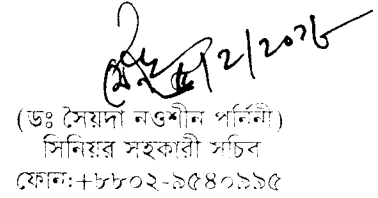 (ডঃ সৈয়দা নওশীন পর্নিনী)
সিনিয়র সহকারী সচিব
ফোন:+৮৮০২-৯৫৪০৯৯৫